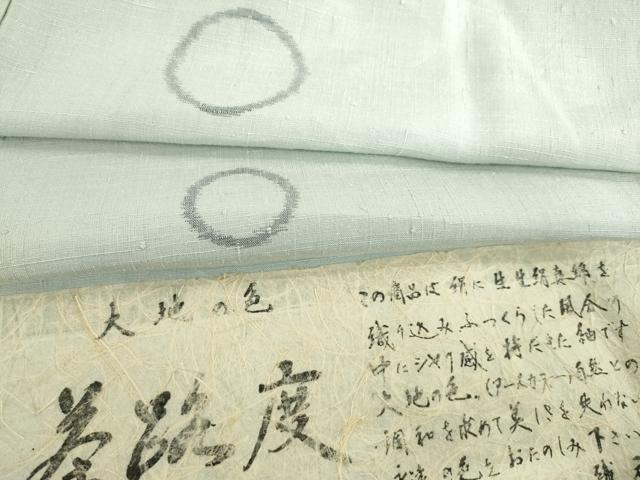 大地の色
路度
この商品は絹に生生絹真綿を
織り込みふっくらした風合の
中にシャリ感を持たせた紬です
大地の色。(アースカラー)自然との
調和を求めて美しさを失わない
の色をおたのしみ下さい
織